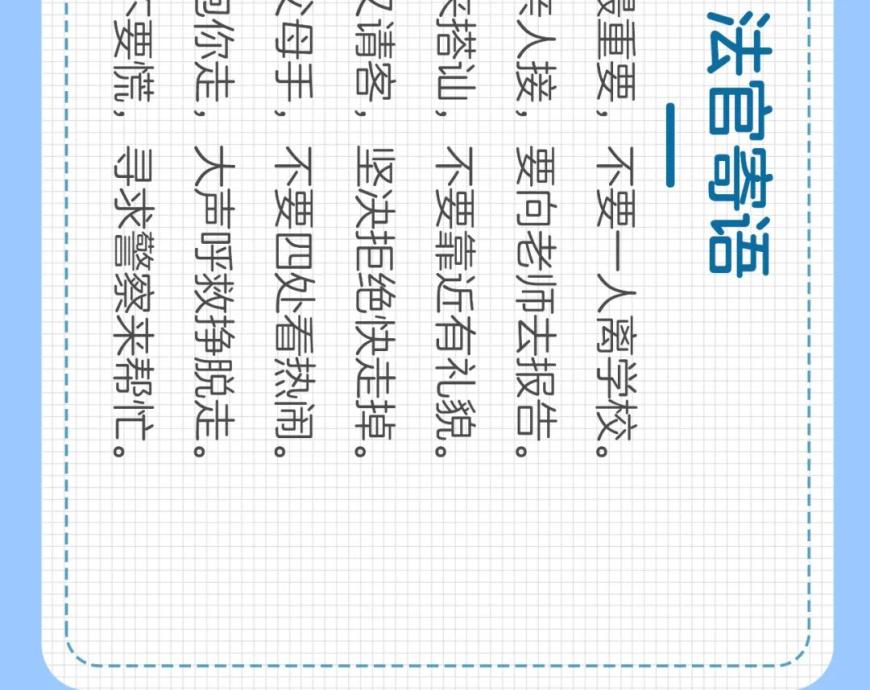 法官寄语
最重要，不要一人离学校。
人接，要向老师去报告。
搭讪，不要靠近有礼貌。
请客，坚决拒绝快走掉。
父母手，不要四处看热闹。
抱你走，大声呼救挣脱走。
不要慌，寻求警察来帮忙。